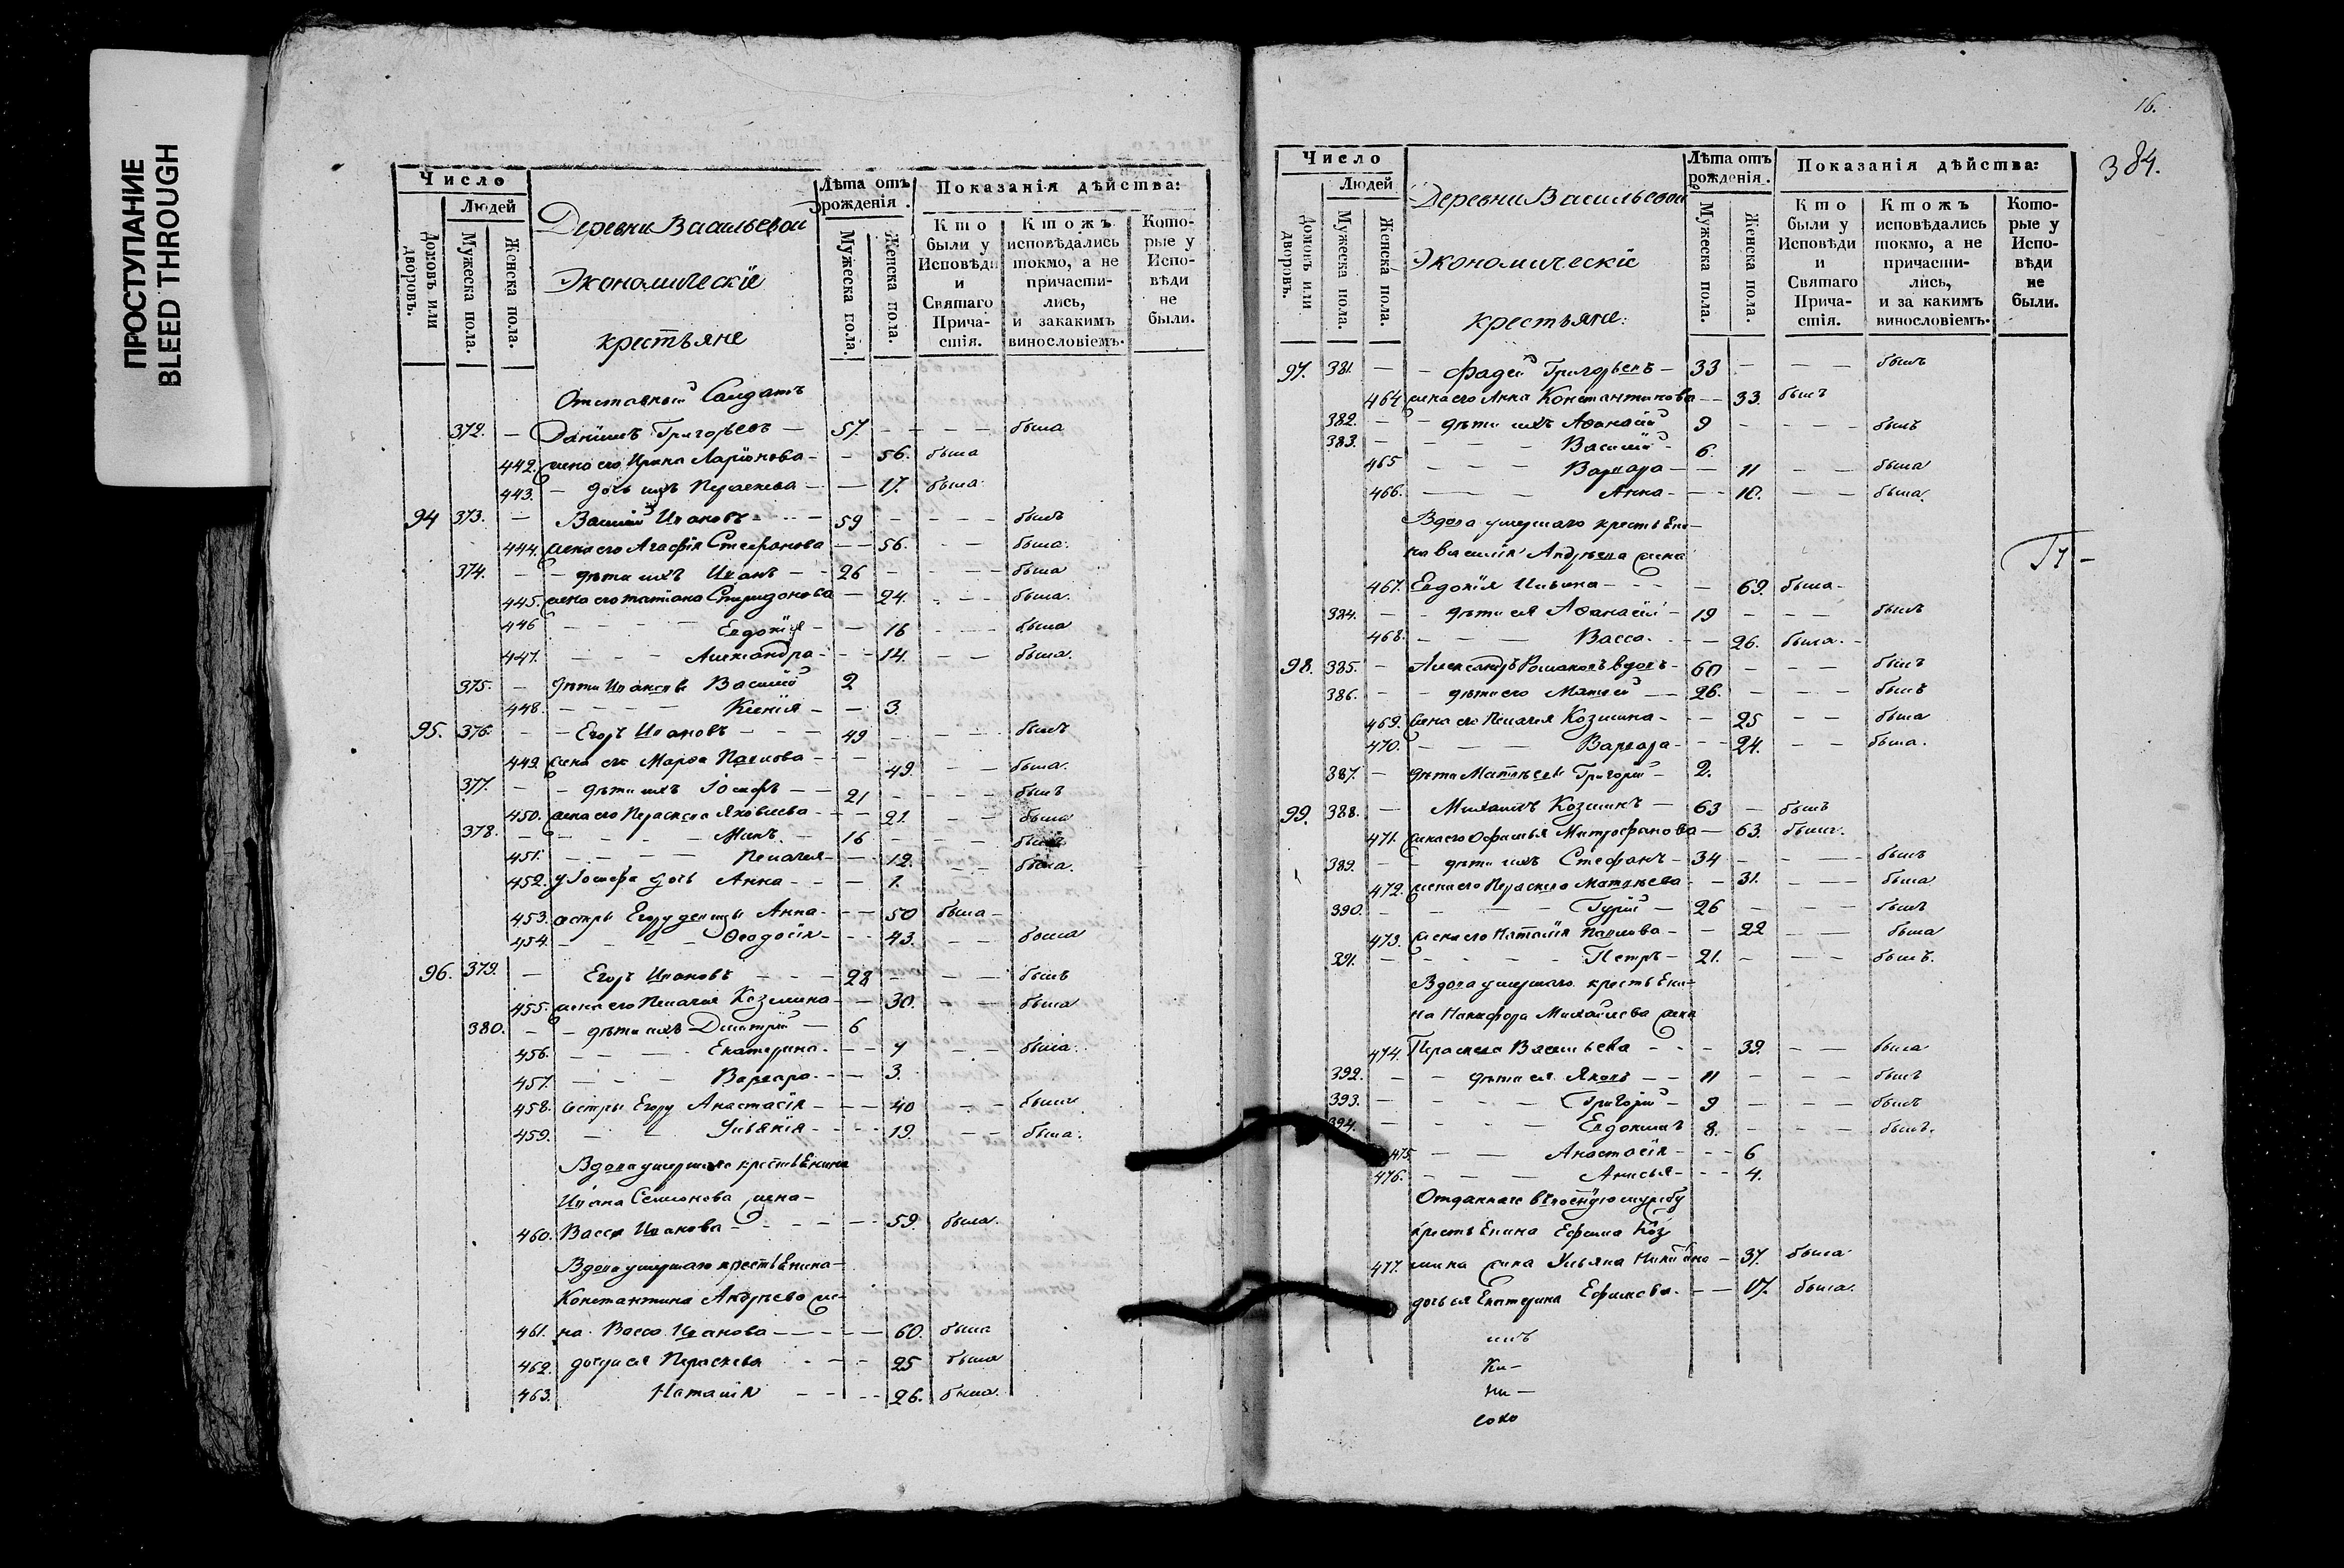 ПРОСТУПАНИЕ
BLEED THROUGH
Число
Людей
Домовъ или дворовъ.
Мужеска пола.
Женска пола.
Деревни Васильевой
Экономическїе
крестьяне
Лѣта отъ рожденїя.
Мужеска пола.
Женска пола.
Показанїя дѣйства:
Кто были у Исповѣди и Святаго Причастїя.
Ктожъ исповѣдались токмо, а не причастились, и закакимъ винословїемъ.
Которые у Исповѣди не были.
Отставный Солдатъ
372. — Данїилъ Григорьевъ — 57. — — — былъ
442. жена его Ирина Ларїонова — — 56. была
443. — дочь ихъ Параскева — — 17. была
94 373. — Василїй Ивановъ — — 59 — — — былъ
444. жена его Агафїя Стефанова — — 56. — — была.
374. — — дѣти ихъ Иванъ — — 26 — — — былъ
445. жена его татїана Спиридонова — 24. — — была.
446 — — — Евдокїя — — 16 — — была
447. — — — Александра — — 14. — — была.
375. — дѣти Ивановы Василїй 2
448. — — — — Ксенїя — — 3.
95. 376. — — Егоръ Ивановъ — — — 49 — — — былъ
449. жена его Марѳа Павлова — — 49. — — была.
377. — — дѣти ихъ Іосифъ — — 21 — — — былъ
450. жена его Параскева Яковлева — — 21. — — была
378. — — — — — 16 — — — былъ
451. — — — — Пелагея — — 12. — — была.
452. у Іосифа дочь Анна — — — 1.
453. сестры Егору девицы Анна — — — 50 была —
454. — — — — Ѳеодосїя — — 43. — — была
96. 379. — Егоръ Ивановъ — — — 28 — — — былъ
455. жена его Пелагея Козмина — — 30. — — была
380. — — дѣти ихъ Дмитрїй — 6
456. — — — Екатерина — — — 7 — — была.
457. — — — Варвара — — — 3.
458. сестры Егору Анастасїя — — — 40 — — была
459. — — Ульянїя — — — — 19. — — была.
Вдова умершаго крестьянина
Ивана Семионова жена —
460. Васса Иванова — — — — — — 59. была.
Вдова умершаго крестьянина —
Константина Андреева же-
461. на Васса Иванова — — — — — 60. была
462. дочери ея Параскева — — — 25 была
463. Наталїя — — — — 26. была.
16.
384.
Число
Людей
Домовъ или дворовъ.
Мужеска пола.
Женска пола.
Деревни Васильевой
Экономическїе
крестьяне:
Лѣта отъ рожденїя.
Мужеска пола.
Женска пола.
Показанїя дѣйства:
Кто были у Исповѣди и Святаго Причастїя.
Ктожъ исповѣдались токмо, а не причастились, и за какимъ винословїемъ.
Которые у Исповѣди не были.
97. 381. — — Фадей Григорьевъ — 33 — — — былъ
464. жена его Анна Константинова — — 33. была
382. — — дѣти ихъ Аѳанасїй 9 — — — — былъ
383. — — — — Василїй — 6.
465 — — — Варвара — — 11 — — была
466. — — — Анна — — — 10. — — была.
Вдова умершаго крестьяни-
на Василїя Андреева жена
467. Евдокїя Ильина — — — — 69. была —
384. — — дѣти ея Аѳанасїй — 19 — — — былъ
468. — — — Васса — — — 26. была. —
98. 385. — Александръ Романовъ вдовъ — 60 — — — былъ
386. — — дѣти его Матвей — — 26. — — — былъ
469. жена его Пелагея Козмина — — — 25 — — была
470. — — — Варвара — — — 24. — — была.
387. — дѣти Матвѣевы Григорїй — 2.
99. 388. — Михаилъ Козминъ — 63 — былъ
471. жена его Офимья Митрофанова — 63. была.
389. — — дѣти ихъ Стефанъ — 34 — — — былъ
472. жена его Параскева Матвѣева — — 31. — — была
390. — — — — Гурїй — 26 — — — былъ
473. жена его Наталїя Павлова — — 22 — — была
391. — — — — — Петръ — 21. — — — былъ.
Вдова умершаго крестьяни-
на Никифора Михайлева жена
474. Параскева Васильева — — — 39. — — была
392. — — дѣти ея Яковъ — — 11 — — — былъ
393. — — — — Григорїй — 9 — — — былъ
394. — — — — Евдокимъ 8. — — — былъ.
475. — — Анастасїя — — — 6
476. — — — Анисья — — — 4.
Отданнаго въ военную службу
крестьянина Ефима Коз
477. мина жена Ульяна Никитина — 37. была
дочь ея Екатерина Ефимова — — 17. была.
Ки —
ни —